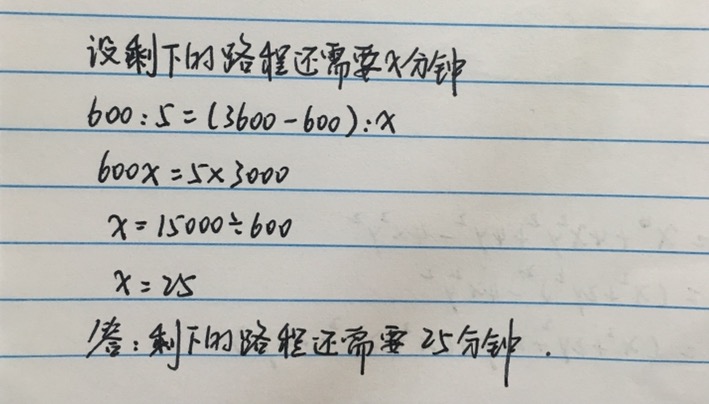 设剩下的路程还需要x分钟
600:5=(3600-600):x
600x=5×3000
x=15000÷600
x=25
答:剩下的路程还需要25分钟.